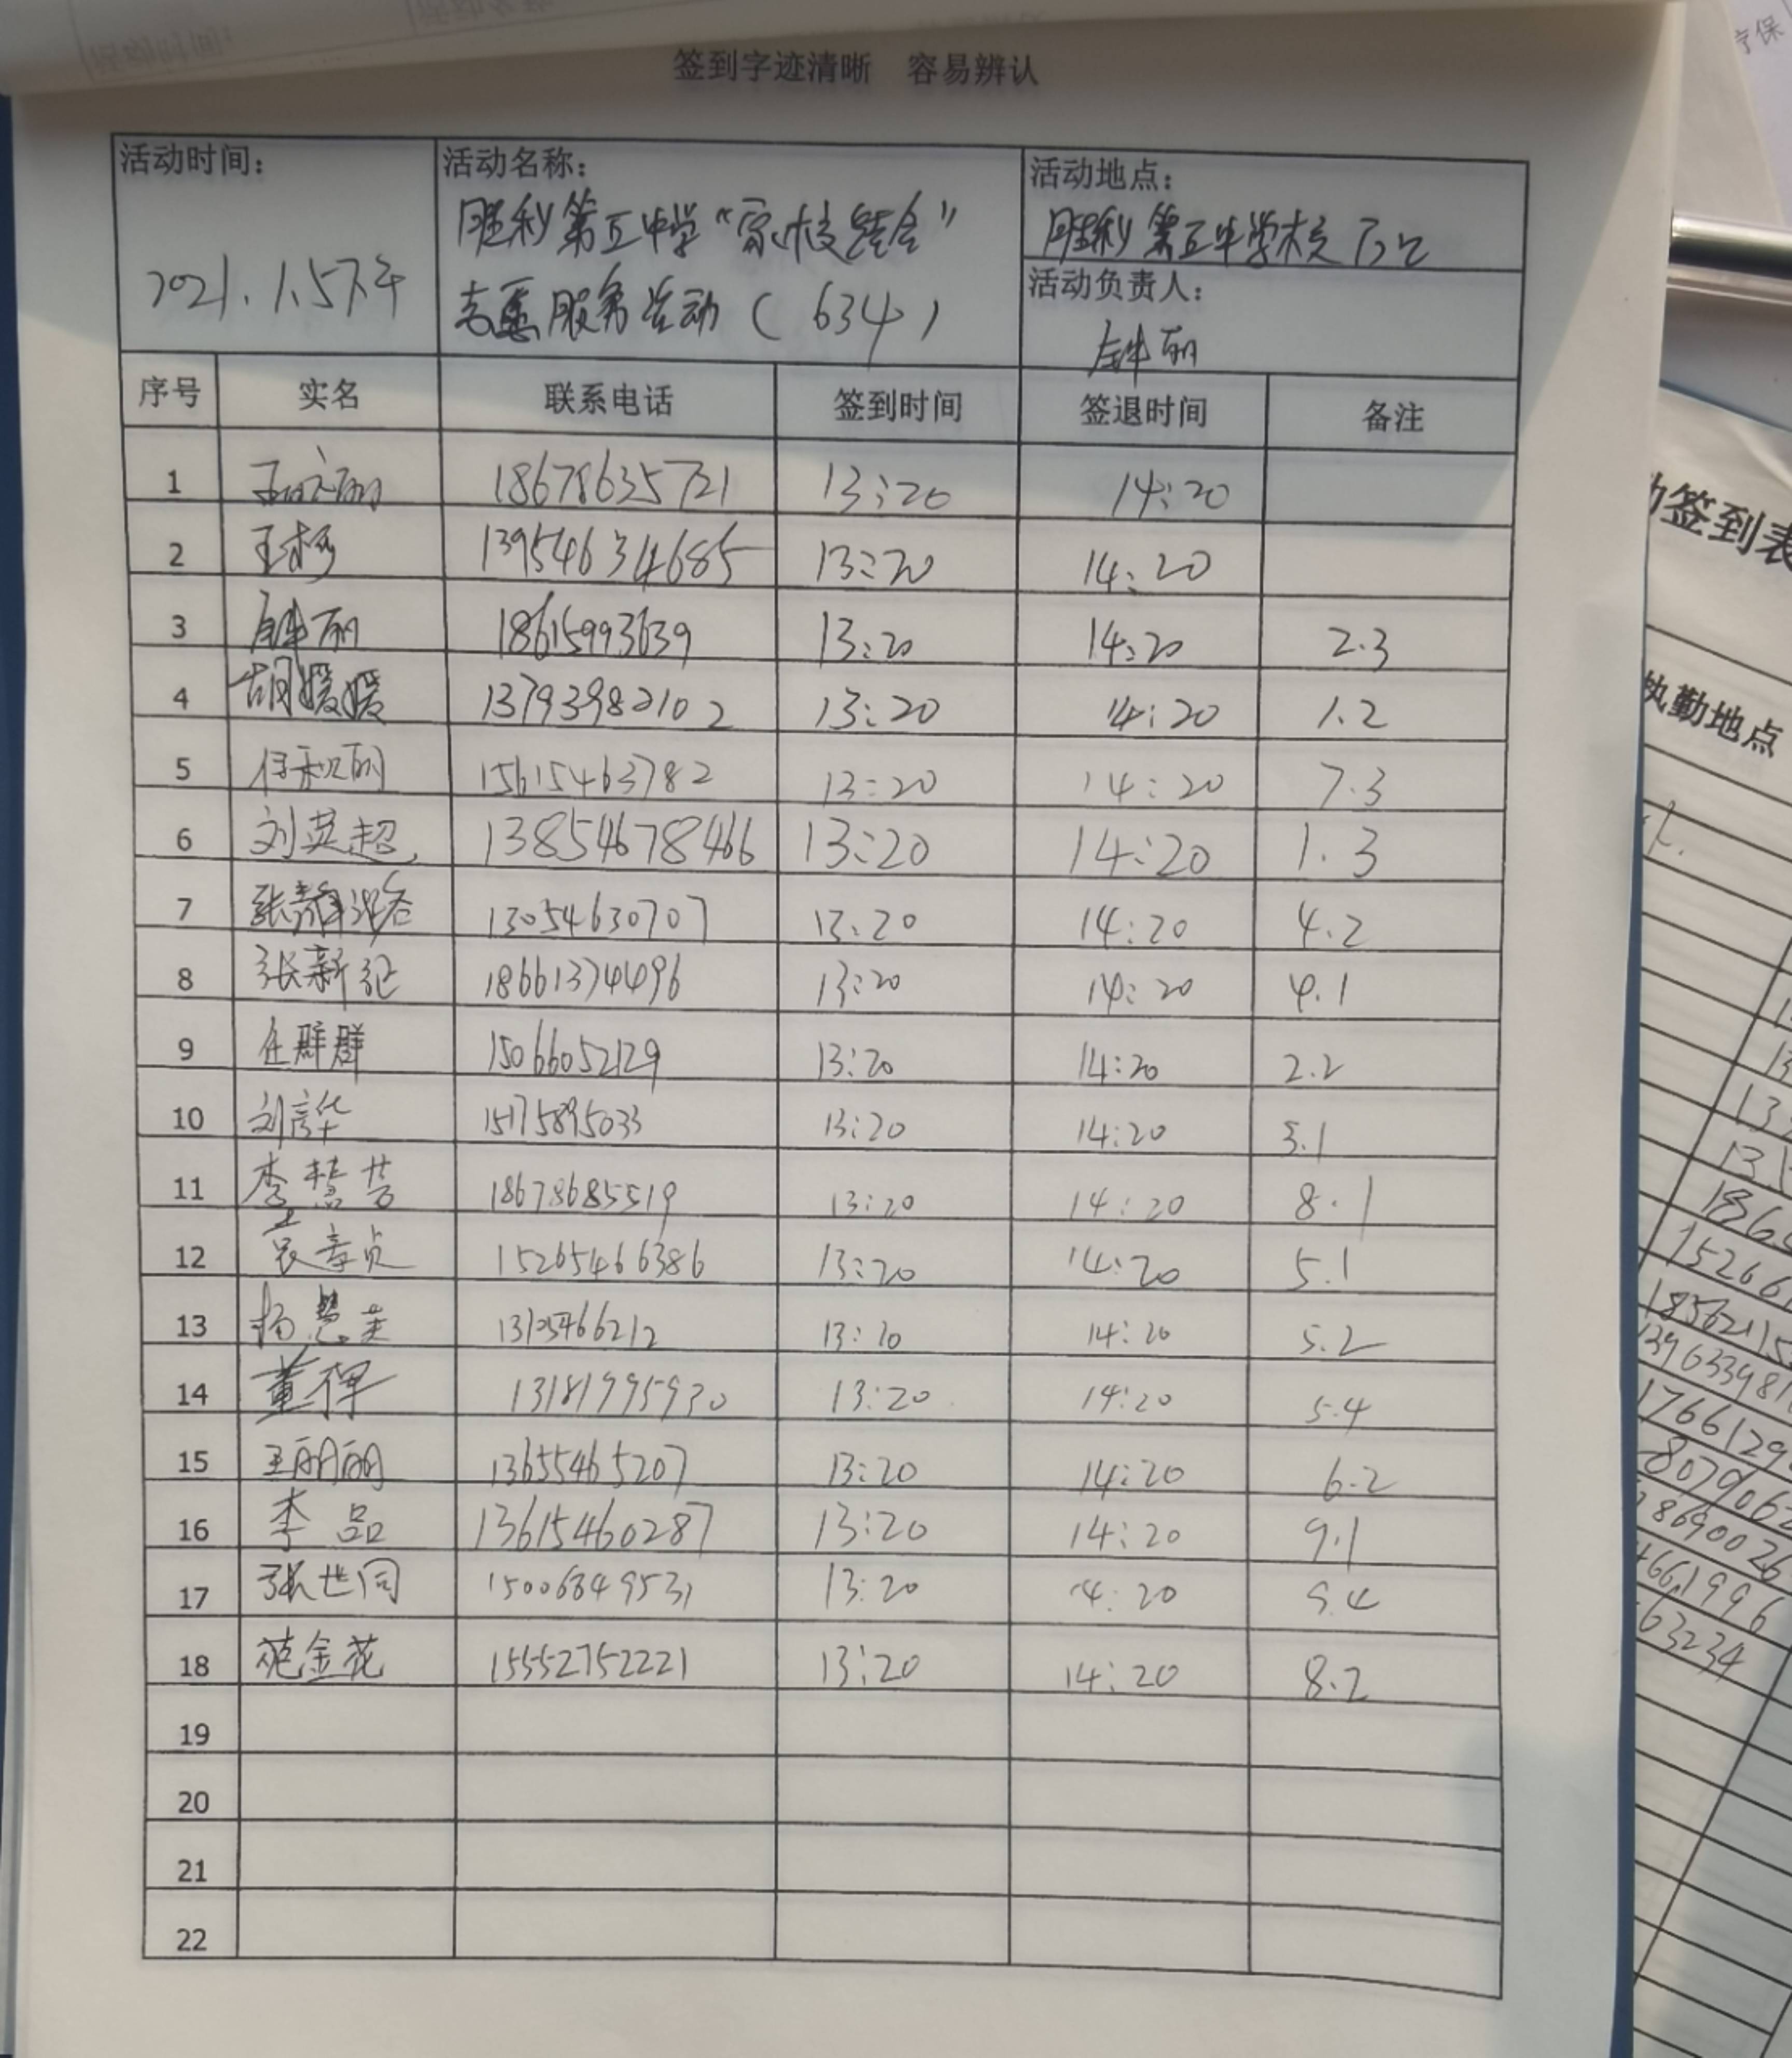 签到字迹清晰 容易辨认
活动时间：
2021.1.5下午
活动名称：
胜利第五中学“家校结合”
志愿服务活动（634）
活动地点：
胜利第五中学校门口
活动负责人：
丽
序号 实名 联系电话 签到时间 签退时间 备注
1 丽 18678635721 13:20 14:20
2 王 13954634685 13:20 14:20
3 丽 18615993639 13:20 14:20 2.3
4 胡媛媛 13793982102 13:20 14:20 1.2
5 任丽 15615463782 13:20 14:20 7.3
6 刘英超 13854678466 13:20 14:20 1.3
7 张静 13054630707 13:20 14:20 4.2
8 张新 18661374496 13:20 14:20 4.1
9 任群群 15066052129 13:20 14:20 2.2
10 刘彦华 13:20 14:20 3.1
11 李慧芳 18678685519 13:20 14:20 8.1
12 袁章贞 15265466386 13:20 14:20 5.1
13 杨慧 13:20 14:20 5.2
14 董 13181995930 13:20 14:20 5.4
15 王丽丽 13655465207 13:20 14:20 6.2
16 李品 13615460287 13:20 14:20 9.1
17 张世同 15006849531 13:20 14:20 9.4
18 范金花 15552752221 13:20 14:20 8.2
19
20
21
22
签到表
执勤地点